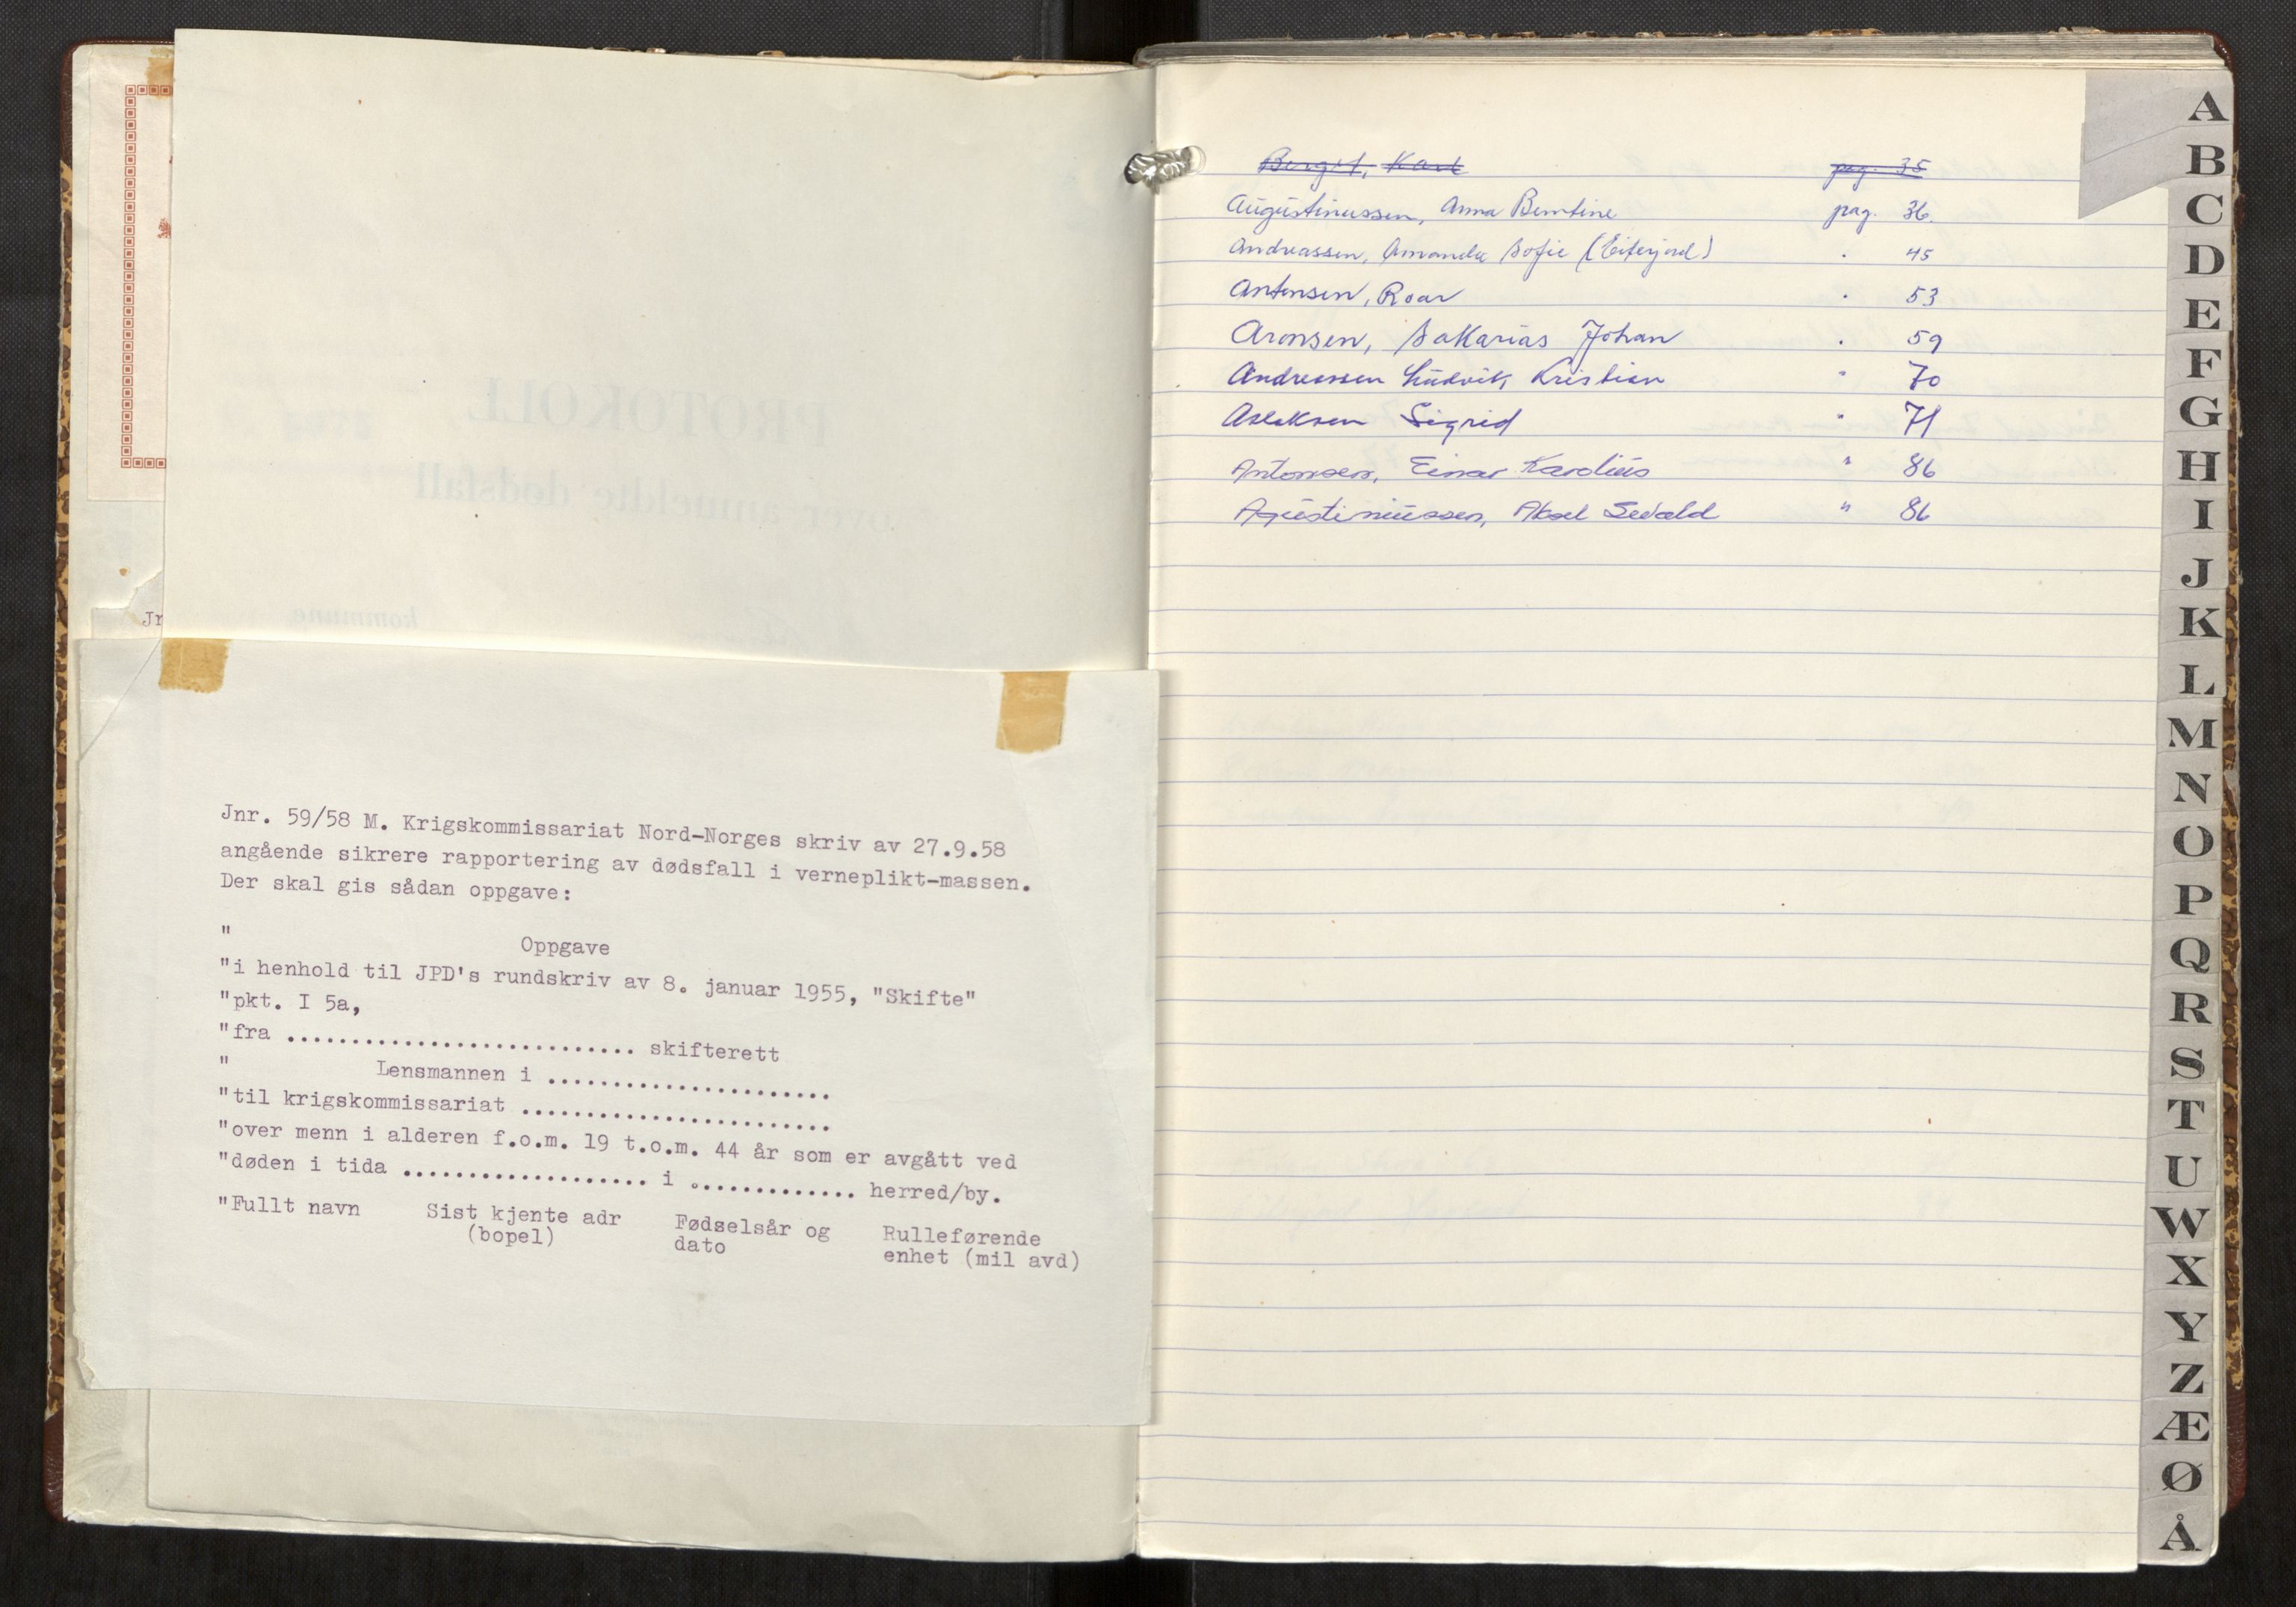 Jr
Jnr. 59/58 M. Krigskommissariat Nord-Norges skriv av 27.9.58
angående sikrere rapportering av dødsfall i verneplikt-massen.
Der skal gis sådan oppgave:
"
Oppgave
"i henhold til JPD's rundskriv av 8. januar 1955, "Skifte"
"pkt. I 5a,
"fra ........................... skifterett
" Lensmannen i ......................
"til krigskommissariat ........................
"over menn i alderen f.o.m. 19 t.o.m. 44 år som er avgått ved
"døden i tida ................... i ............. herred/by.
"Fullt navn Sist kjente adr Fødselsår og Rulleførende
(bopel) dato enhet (mil avd)
Bergit, Karl pag. 35
Augustinussen, Anna Berntine pag. 36.
Andreassen, Amanda Sofie (Eiterjord) " 45
Antonsen, Roar " 53
Aronsen, Sakarias Johan " 59
Andreassen Ludvik Kristian " 70
Aslaksen Sigrid " 71
Antonsen, Einar Karolius " 86
Agustinussen, Aksel Sevald " 86
A
B
C
D
E
F
G
H
I
J
K
L
M
N
O
P
Q
R
S
T
U
W
X
Y
Z
Æ
Ø
Å